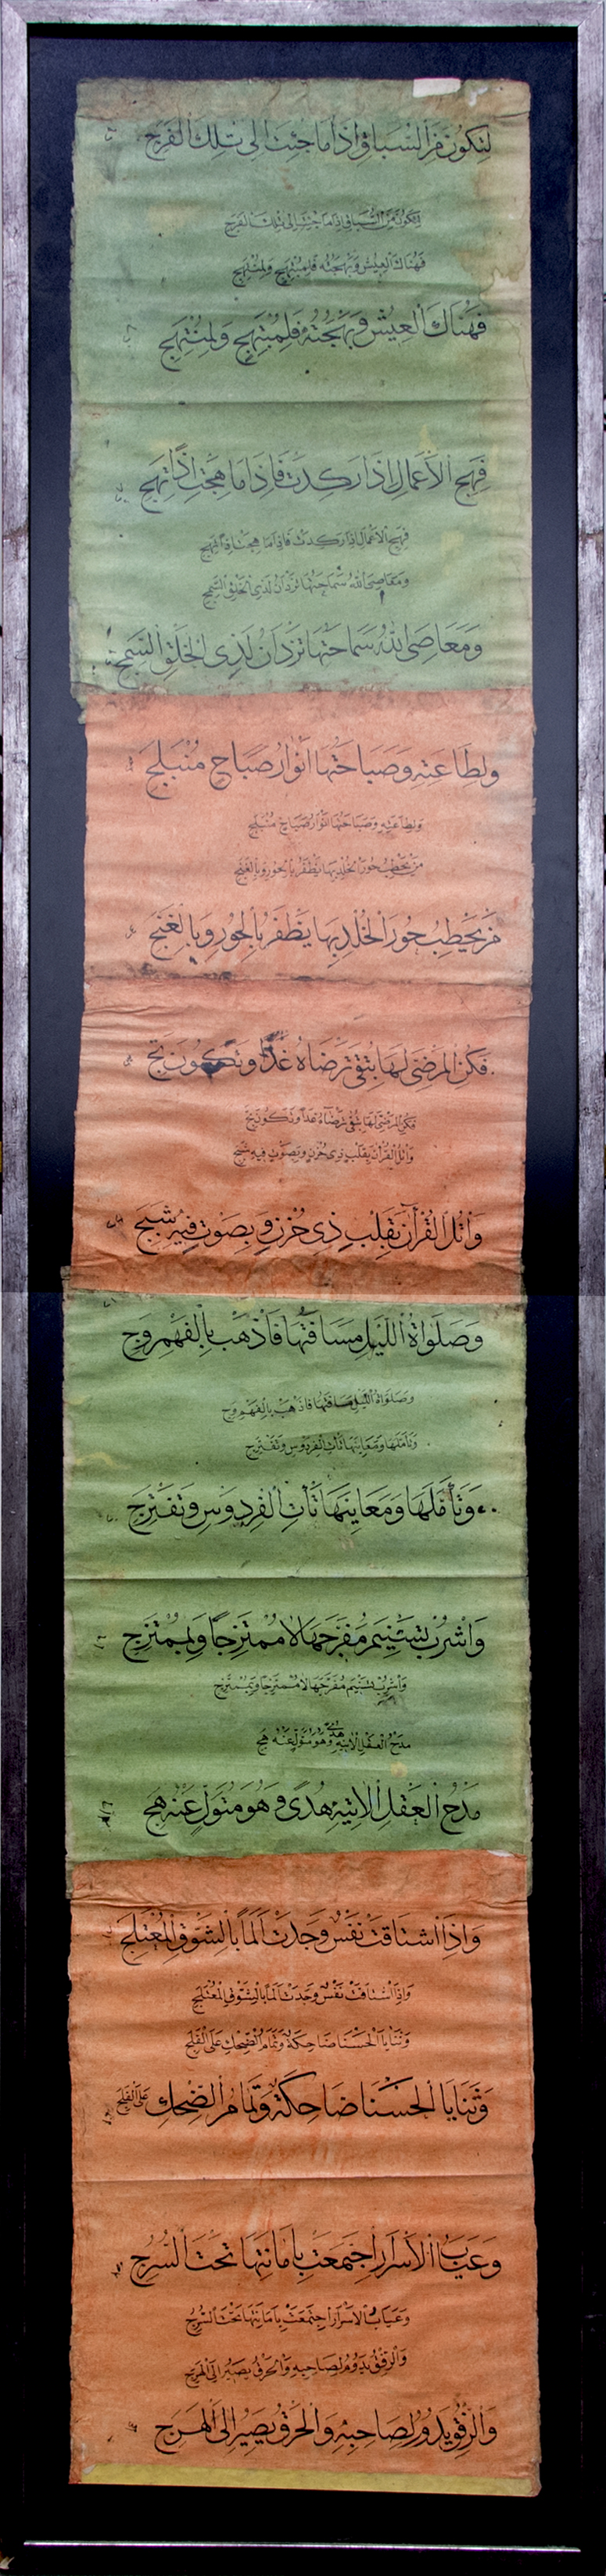 لِتَكُونَ مِنَ السُّبَّاقِ اِذَا مَا جِئْتَ اِلَى تِلْكَ الْفَرَجِ
لِتَكُونَ مِنَ السُّبَّاقِ اِذَا مَا جِئْتَ اِلَى تِلْكَ الْفَرَجِ
فَهُنَاكَ الْعَيْشُ وَبَهْجَتُهُ فَلِمُبْتَهِجٍ وَلِمُنْتَهِجِ
فَهُنَاكَ الْعَيْشُ وَبَهْجَتُهُ فَلِمُبْتَهِجٍ وَلِمُنْتَهِجِ
فَهِجِ الْاَعْمَالَ اِذَا رَكَدَتْ فَاِذَا مَا هِجْتَ اِذًا تَهِجِ
فَهِجِ الْاَعْمَالَ اِذَا رَكَدَتْ فَاِذَا مَا هِجْتَ اِذًا تَهِجِ
وَمَعَاصِى اللهِ سَمَاجَتُهَا تَزْدَانُ لِذِى الْخُلُقِ السَّمِجِ
وَمَعَاصِى اللهِ سَمَاجَتُهَا تَزْدَانُ لِذِى الْخُلُقِ السَّمِجِ
وَلِطَاعَتِهِ وَصَبَاحَتِهَا اَنْوَارُ صَبَاحٍ مُنْبَلِجِ
وَلِطَاعَتِهِ وَصَبَاحَتِهَا اَنْوَارُ صَبَاحٍ مُنْبَلِجِ
مَنْ يَخْطِبُ حُورَ الْخُلْدِ بِهَا يَظْفَرْ بِالْحُورِ وَبِالْغَنَجِ
مَنْ يَخْطِبُ حُورَ الْخُلْدِ بِهَا يَظْفَرْ بِالْحُورِ وَبِالْغَنَجِ
فَكُنِ الْمَرْضِىَّ لَهَا بِتُقًى تَرْضَاهُ غَدًا وَتَكُونَ نَجِ
فَكُنِ الْمَرْضِىَّ لَهَا بِتُقًى تَرْضَاهُ غَدًا وَتَكُونَ نَجِ
وَاتْلُ الْقُرْآنَ بِقَلْبٍ ذِى حُزْنٍ وَبِصَوْتٍ فِيهِ شَجِ
وَاتْلُ الْقُرْآنَ بِقَلْبٍ ذِى حُزْنٍ وَبِصَوْتٍ فِيهِ شَجِ
وَصَلَوَاةُ اللَّيْلِ مَسَافَتُهَا فَاذْهَبْ بِالْفَهْمِ وَجِ
وَصَلَوَاةُ اللَّيْلِ مَسَافَتُهَا فَاذْهَبْ بِالْفَهْمِ وَجِ
وَتَأَمَّلْهَا وَمَعَانِيَهَا تَأْتِ الْفِرْدَوْسَ وَتَفْتَرِجِ
وَتَأَمَّلْهَا وَمَعَانِيَهَا تَأْتِ الْفِرْدَوْسَ وَتَفْتَرِجِ
وَاشْرَبْ تَسْنِيمَ مُفَجَّرِهَا لَا مُمْتَزِجًا وَبِمُمْتَزِجِ
وَاشْرَبْ تَسْنِيمَ مُفَجَّرِهَا لَا مُمْتَزِجًا وَبِمُمْتَزِجِ
مَدْحُ الْعَقْلِ الْآتِيهِ هُدًى وَهُوَ مُتَوَلٍّ عَنْهُ هَجِ
مُدِحَ الْعَقْلُ الْآتِيهِ هُدًى وَهُوَ مُتَوَلٍّ عَنْهُ هَجِ
وَاِذَا اشْتَاقَتْ نَفْسٌ وَجَدَتْ اَلَمًا بِالشَّوْقِ الْمُعْتَلِجِ
وَاِذَا اشْتَاقَتْ نَفْسٌ وَجَدَتْ اَلَمًا بِالشَّوْقِ الْمُعْتَلِجِ
وَثَنَايَا الْحَسْنَا ضَاحِكَةٌ وَتَمَامُ الضِّحْكِ عَلَى الْفَلَجِ
وَثَنَايَا الْحَسْنَا ضَاحِكَةٌ وَتَمَامُ الضِّحْكِ عَلَى الْفَلَجِ
وَعِيَابُ الْاَسْرَارِ اجْتَمَعَتْ بِاَمَانَتِهَا تَحْتَ السُّرُجِ
وَعِيَابُ الْاَسْرَارِ اجْتَمَعَتْ بِاَمَانَتِهَا تَحْتَ السُّرُجِ
وَالرِّفْقُ يَدُومُ لِصَاحِبِهِ وَالْخَرْقُ يَصِيرُ اِلَى الْهَرَجِ
وَالرِّفْقُ يَدُومُ لِصَاحِبِهِ وَالْخَرْقُ يَصِيرُ اِلَى الْهَرَجِ